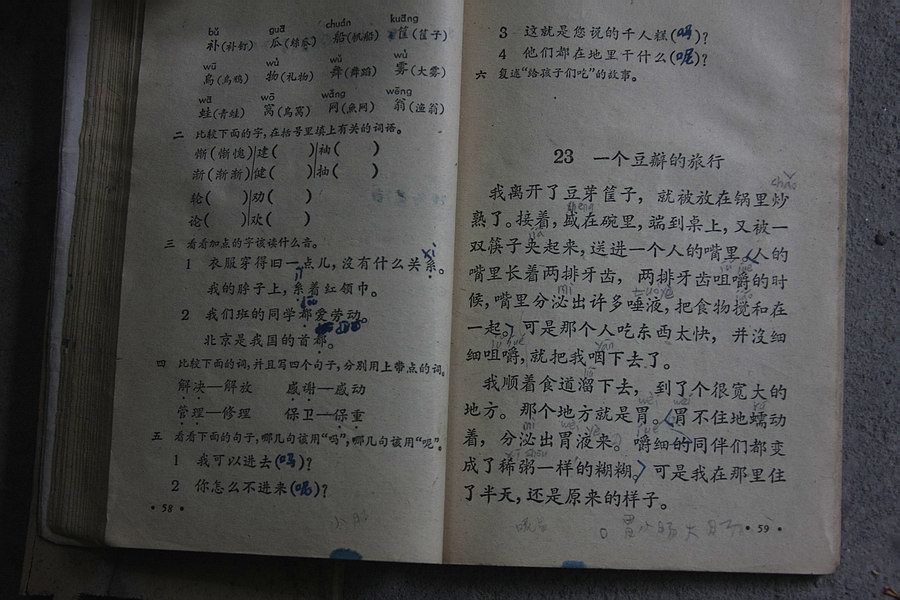 bǔ guā chuán kuāng
补(补钉) 瓜(丝瓜) 船(帆船) 筐(筐子)
wū wù wǔ wù
乌(乌鸦) 物(礼物) 舞(舞蹈) 雾(大雾)
wā wō wǎng wēng
蛙(青蛙) 窝(鸟窝) 网(鱼网) 翁(渔翁)
二 比较下面的字,在括号里填上有关的词语。
惭(惭愧) 建( ) 袖( )
渐(渐渐) 健( ) 抽( )
轮( ) 劝( )
论( ) 欢( )
三 看看加点的字该读什么音。
1 衣服穿得旧一点儿,没有什么关系。
xì
我的脖子上,系着红领巾。
2 我们班的同学都爱劳动。
北京是我国的首都。
四 比较下面的词,并且写四个句子,分别用上带点的词。
解决—解放 感谢—感动
管理—修理 保卫—保重
五 看看下面的句子,哪几句该用“吗”,哪几句该用“呢”。
1 我可以进去(吗)?
2 你怎么不进来(呢)?
• 58 •
小肠
3 这就是您说的千人糕(吗)?
4 他们都在地里干什么(呢)?
六 复述“给孩子们吃”的故事。
23 一个豆瓣的旅行
chǎo
我离开了豆芽筐子, 就被放在锅里炒
熟了。接着,盛在碗里,端到桌上,又被一
双筷子夹起来,送进一个人的嘴里。人的
嘴里长着两排牙齿, 两排牙齿咀嚼的时
mì
候,嘴里分泌出许多唾液,把食物搅和在
一起。可是那个人吃东西太快, 并没细
yàn
细咀嚼,就把我咽下去了。
我顺着食道溜下去, 到了个很宽大的
wèi
地方。 那个地方就是胃。胃不住地蠕动
着, 分泌出胃液来。 嚼细的同伴们都变
成了稀粥一样的糊糊。可是我在那里住
了半天,还是原来的样子。
胃小肠大肠
• 59 •